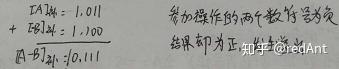 [A]补 = 1.011
+ [-B]补 = 1.100
[A-B]补 = 10.111
参加操作的两个数符号为负
结果却为正
知乎 @redAnt